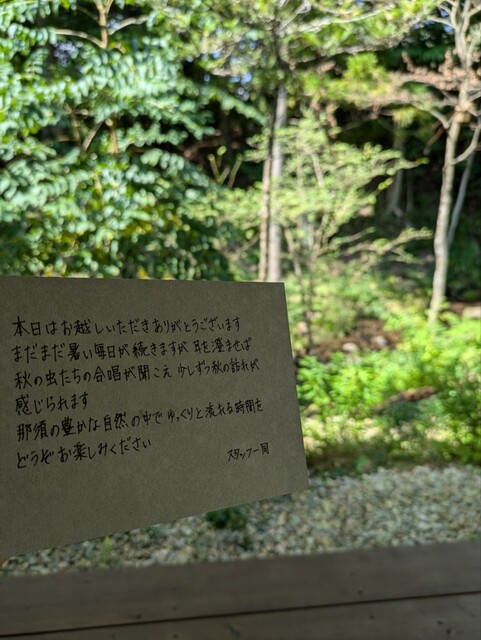 本日はお越しいただきありがとうございます
まだまだ暑い毎日が続きますが 耳を澄ませば
秋の虫たちの合唱が聞こえ 少しずつ秋の訪れが
感じられます
那須の豊かな自然の中で ゆっくりと流れる時間を
どうぞお楽しみください
スタッフ一同